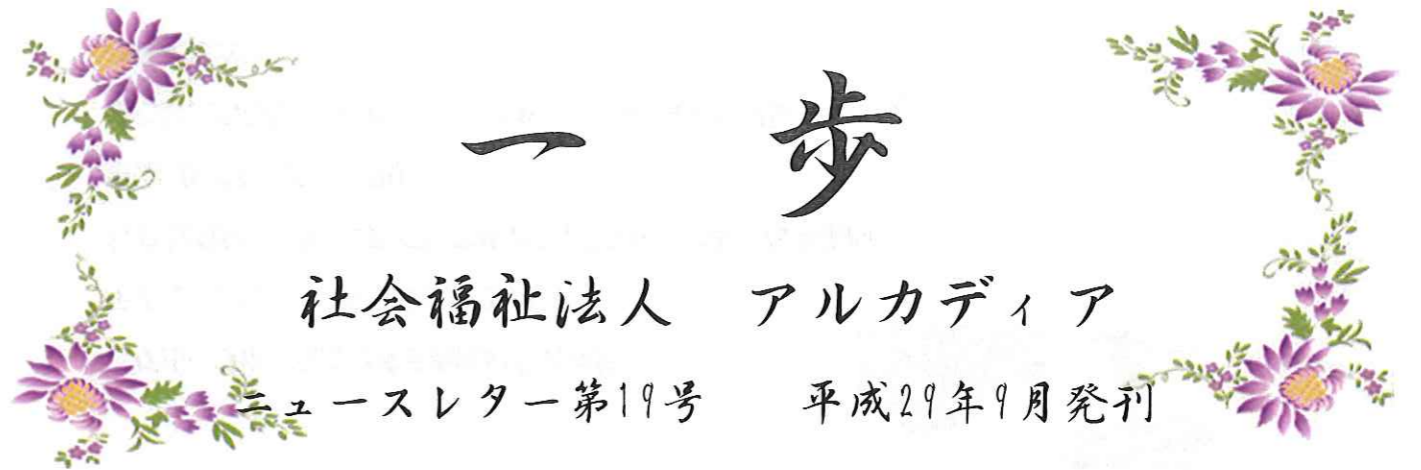 一 歩
社会福祉法人 アルカディア
ニュースレター第19号 平成29年9月発刊